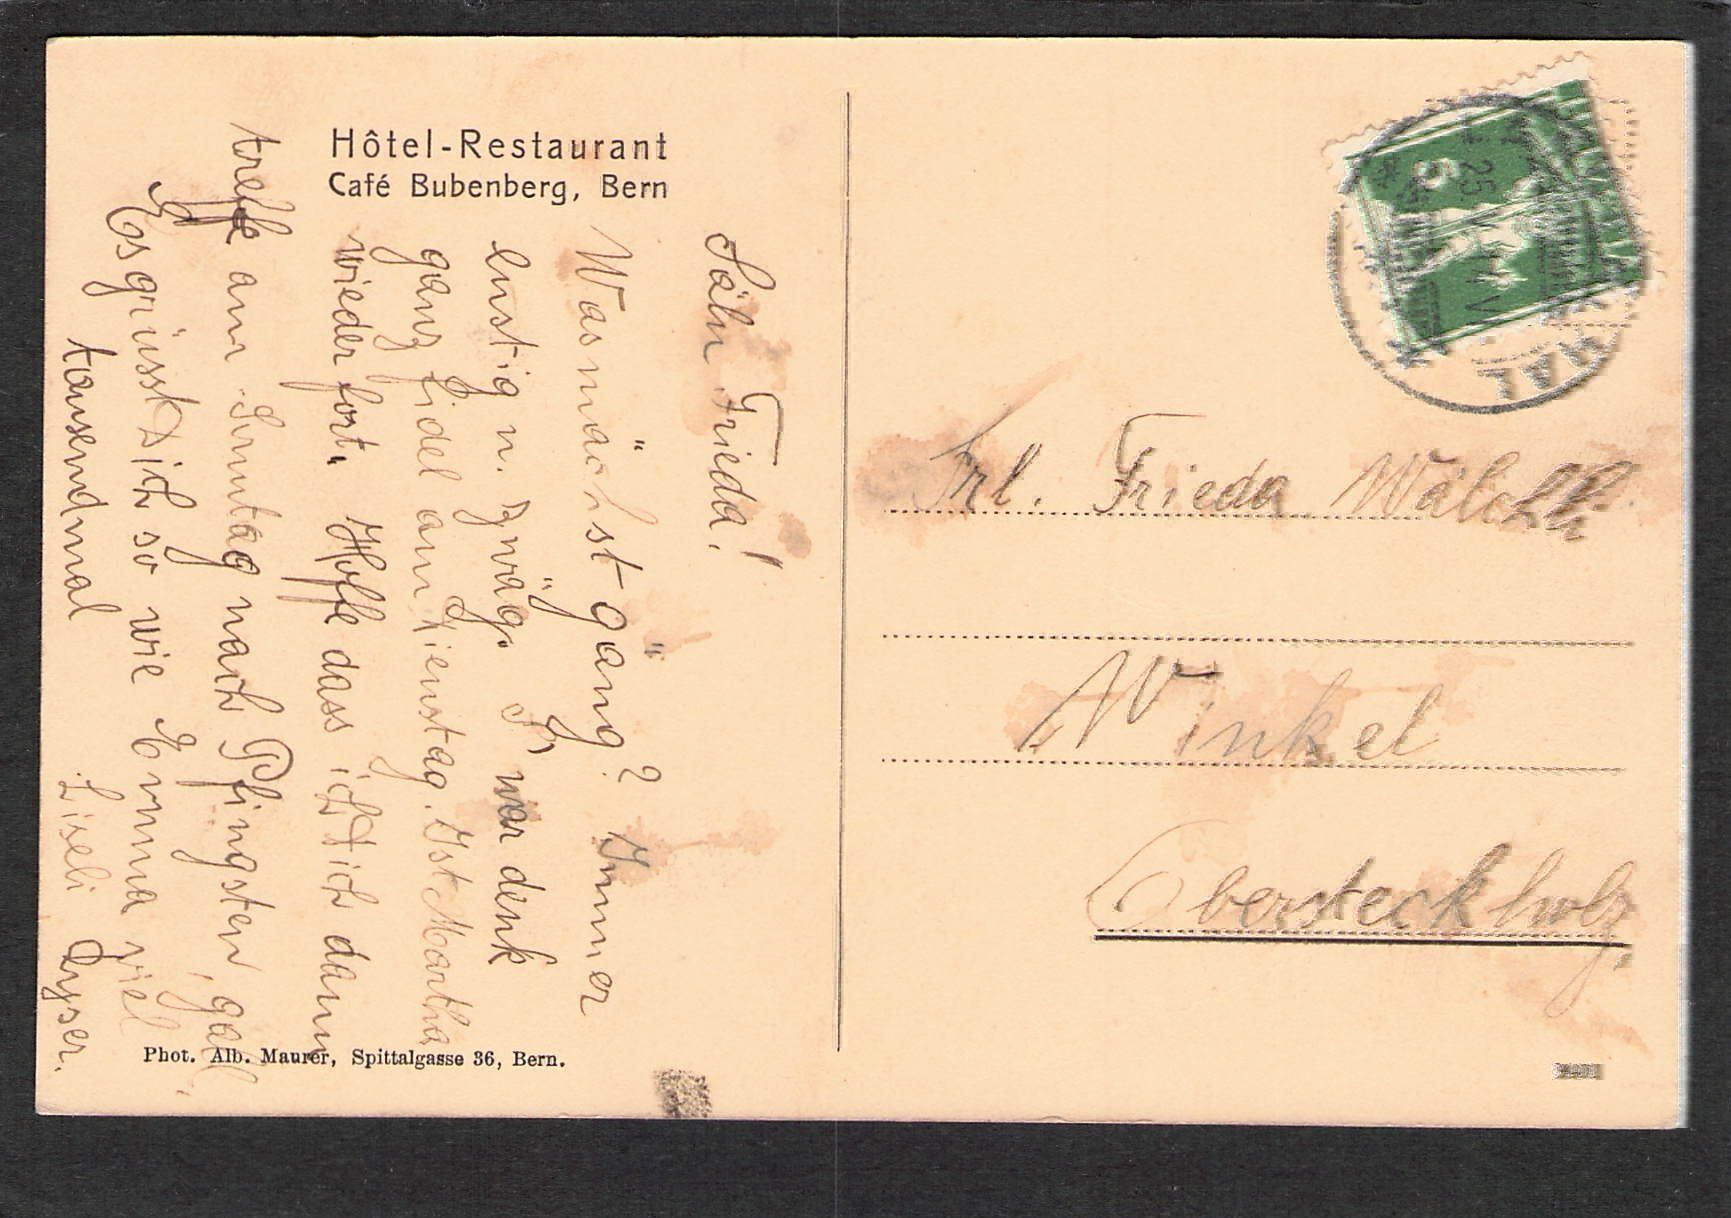 Hôtel-Restaurant
Café Bubenberg, Bern
Säln Frieda!
Was mächst gäng? Immer
lustig u. zwäg. I war denk
ganz fidel am Dienstag. Ist Martha
wieder fort. Hoffe dass ich Dich dann
treffe am Sonntag nach Pfingsten, gäll.
Es grüsst Dich so wie Emma viel
tausendmal
Liseli Gyser.
Phot. Alb. Maurer, Spittalgasse 36, Bern.
5
25
V
HAL
Frl. Frieda Wälchli
Winkel
Obersteckholz